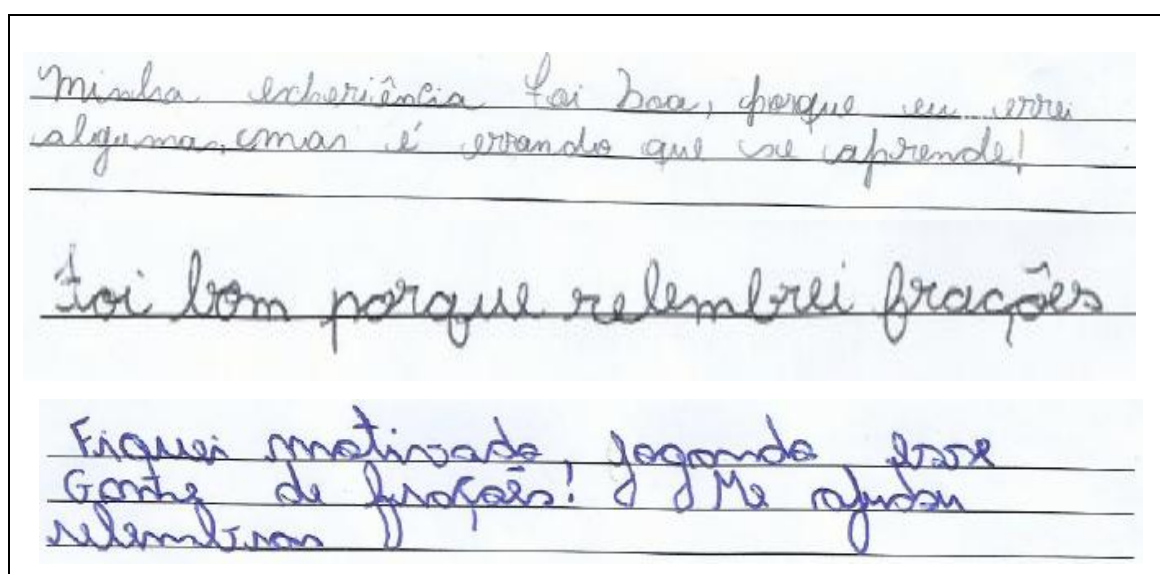 Minha experiência foi boa, porque eu errei
alguma, mas é errando que se aprende!
Foi bom porque relembrei frações
Fiquei motivado, jogando esse
Game de frações! Me ajudou
relembrar